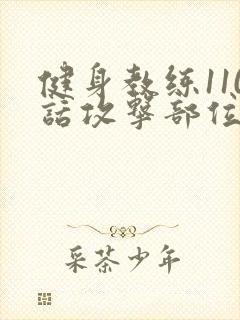 健身教练110
話攻擊部位
采茶少年